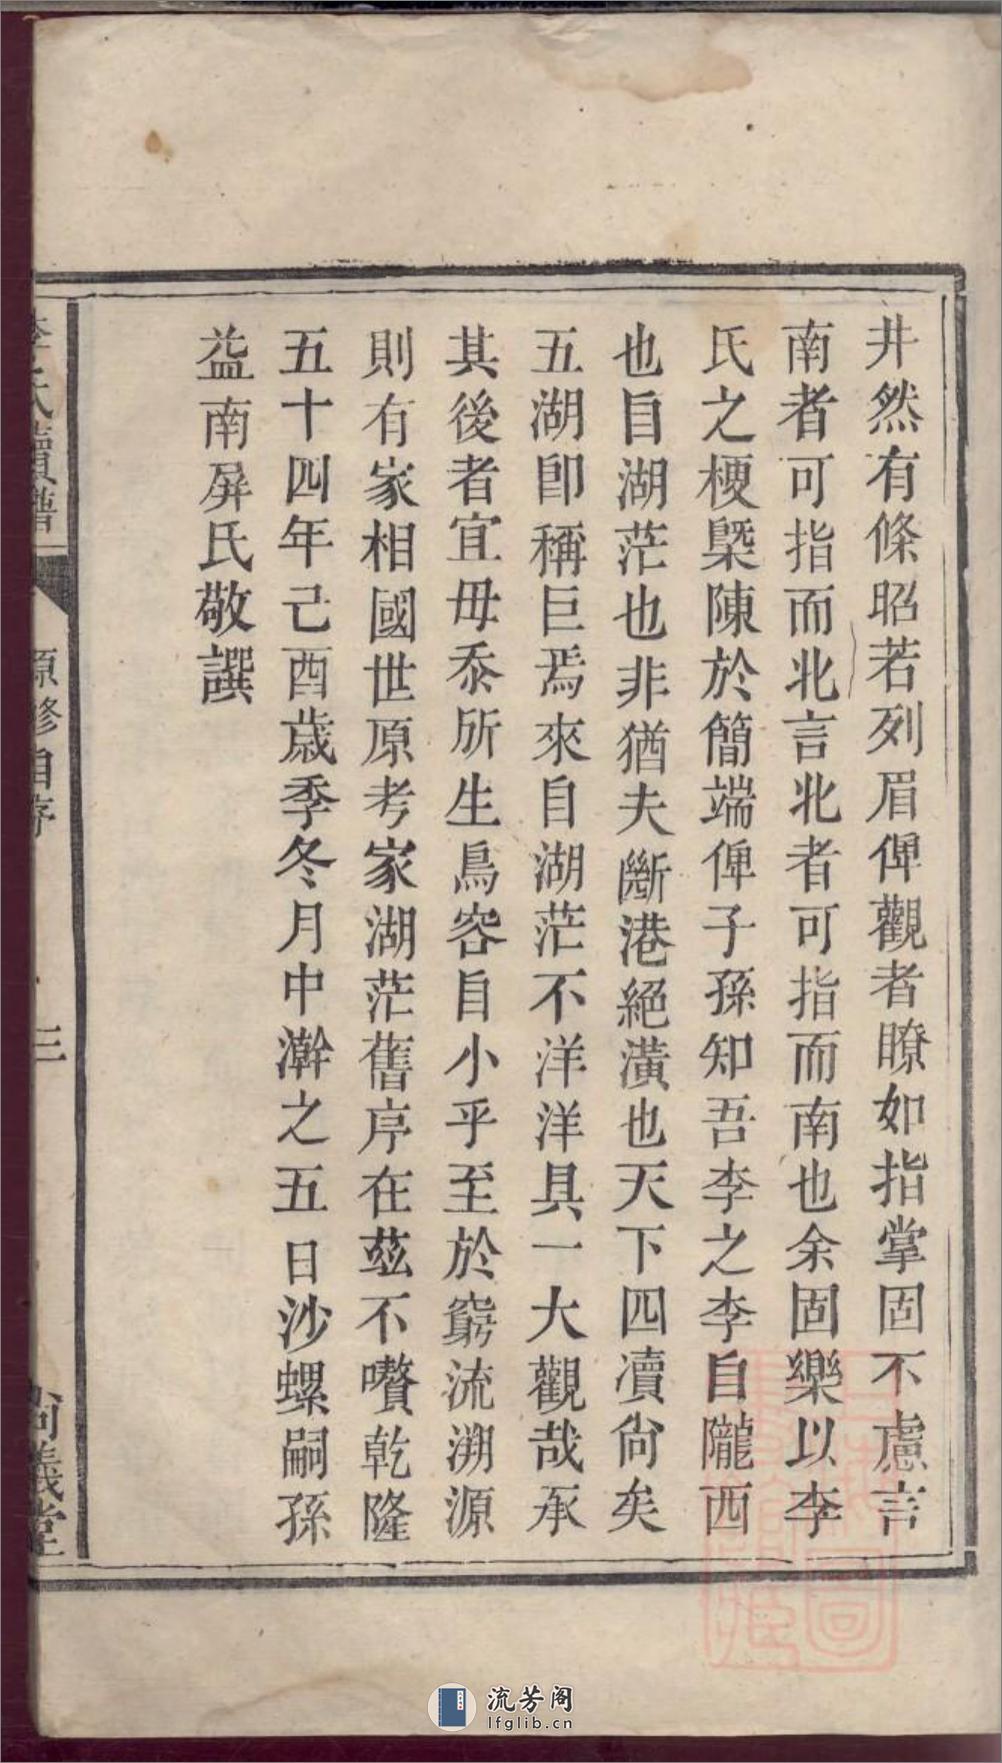 井然有條昭若列眉俾觀者瞭如指掌固不慮言
南者可指而北言北者可指而南也余固樂以李
氏之梗槩陳於簡端俾子孫知吾李之李自隴西
也自湖茫也非猶夫斷港絕潢也天下四瀆尙矣
五湖卽稱巨焉來自湖茫不洋洋具一大觀哉承
其後者宜毋忝所生鳥容自小乎至於窮流溯源
則有家相國世原考家湖茫舊序在茲不囋乾隆
五十四年己酉歲季冬月中澣之五日沙螺嗣孫
益南屏氏敬譔
李氏續譜
原修自序
三
尚義堂
流芳阁
lfglib.cn